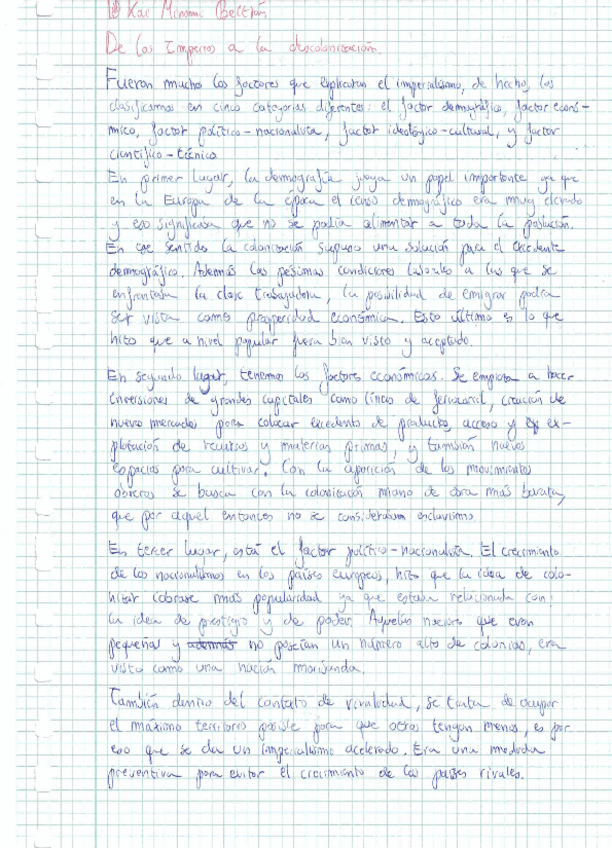 Kac Beltrán
De los Imperios a la descolonización.
Fueron mucho los factores que explicaran el imperialismo, de hecho, los
clasificamos en cinco categorías diferentes: el factor demográfico, factor econó-
mico, factor político-nacionalista, factor ideológico-cultural, y factor
científico-técnico
En primer lugar, la demografía juega un papel importante ya que
en la Europa de la época el índice demográfico era muy elevado
y eso significaba que no se podía alimentar a toda la población.
En ese sentido la colonización supuso una solución para el excedente
demográfico. Además las pésimas condiciones laborales a las que se
enfrentaba la clase trabajadora, la posibilidad de emigrar podía
ser vista como prosperidad económica. Esto último es lo que
hizo que a nivel popular fuera bien visto y aceptado.
En segundo lugar, tenemos los factores económicos. Se empieza a hacer
inversiones de grandes capitales como línea de ferrocarril, creación de
nuevo mercados para colocar excedente de producto, acceso y ex-
plotación de recursos y materias primas, y también nuevos
espacios para cultivar. Con la aparición de los movimientos
obreros se busca con la colonización mano de obra más barata,
que por aquel entonces no se consideraban esclavismo
En tercer lugar, está el factor político-nacionalista. El crecimiento
de los nacionalismos en los países europeos, hizo que la idea de colo-
nizar cobrase más popularidad ya que estaba relacionada con
la idea de prestigio y de poder. Aquellas naciones que eran
pequeñas y además no poseían un número alto de colonias, era
vista como una nación moribunda.
También dentro del contexto de rivalidad, se trata de ocupar
el máximo territorio posible para que otros tengan menos, es por
eso que se da un imperialismo acelerado. Era una medida
preventiva para evitar el crecimiento de los países rivales.